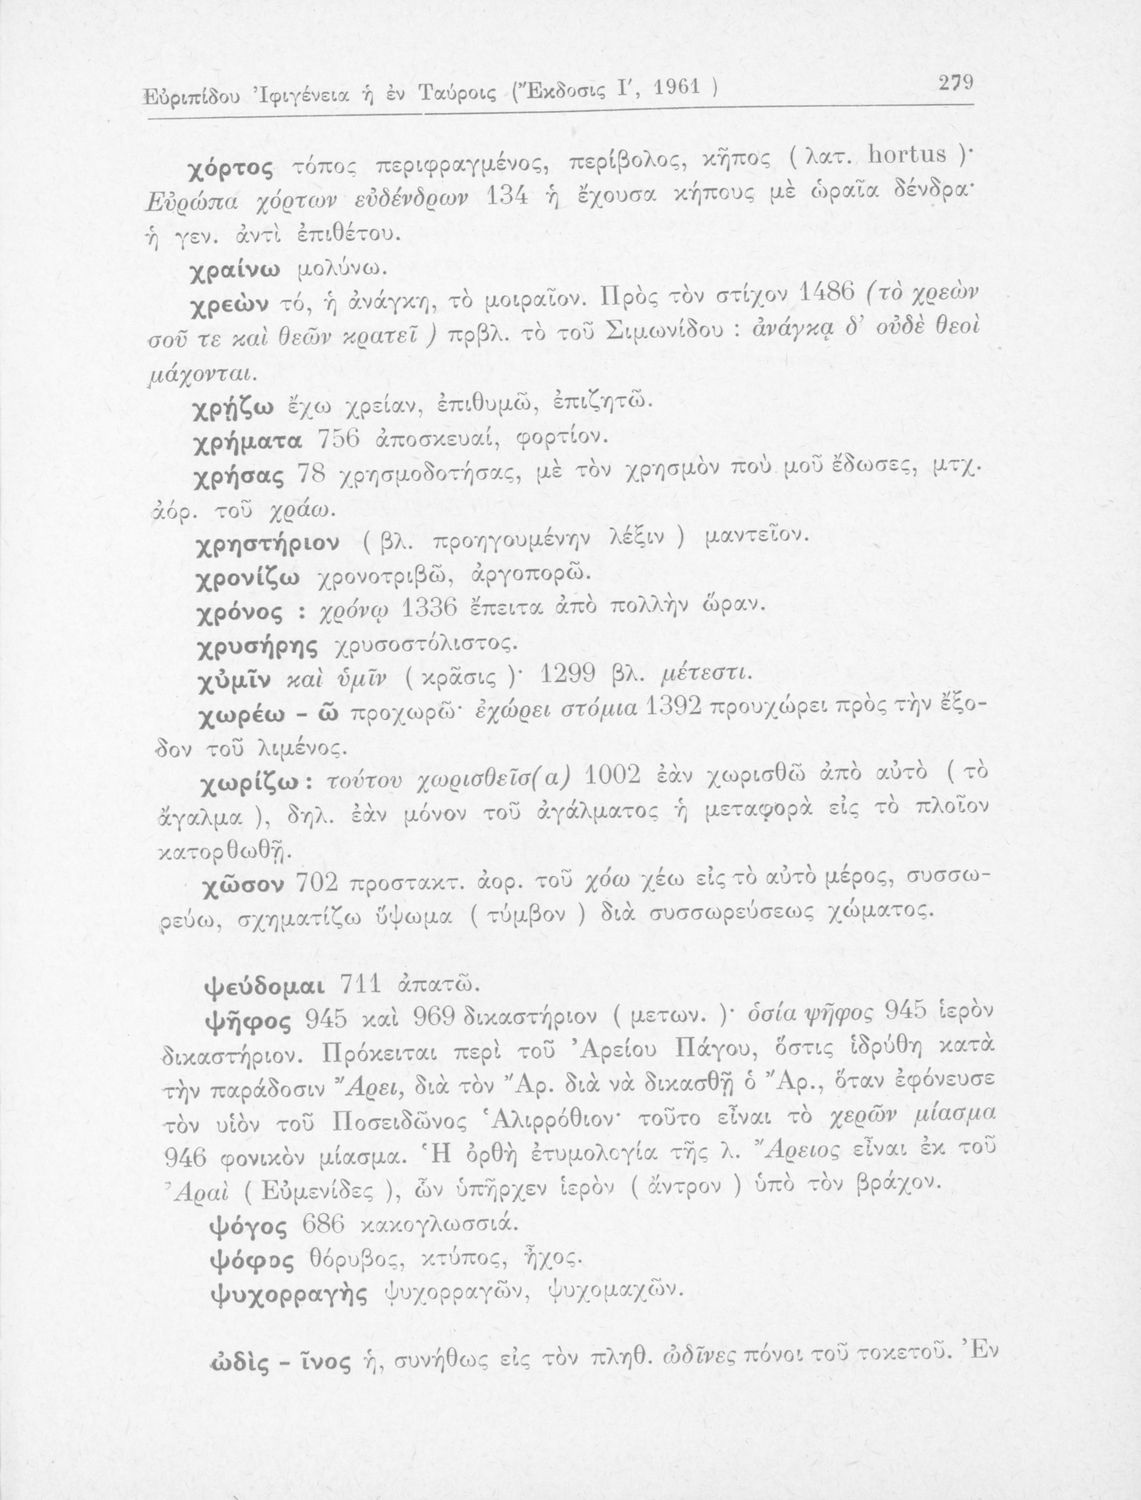 Εὐριπίδου Ἰφιγένεια ἡ ἐν Ταύροις (Ἔκδοσις Ι', 1961 ) 279
χόρτος τόπος περιφραγμένος, περίβολος, κῆπος ( λατ. hortus )·
Εὐρώπα χόρτων εὐδένδρων 134 ἡ ἔχουσα κήπους μὲ ὡραῖα δένδρα·
ἡ γεν. ἀντὶ ἐπιθέτου.
χραίνω μολύνω.
χρεὼν τό, ἡ ἀνάγκη, τὸ μοιραῖον. Πρὸς τὸν στίχον 1486 (τὸ χρεὼν
σοῦ τε καὶ θεῶν κρατεῖ ) πρβλ. τὸ τοῦ Σιμωνίδου : ἀνάγκᾳ δ' οὐδὲ θεοὶ
μάχονται.
χρῄζω ἔχω χρείαν, ἐπιθυμῶ, ἐπιζητῶ.
χρήματα 756 ἀποσκευαί, φορτίον.
χρήσας 78 χρησμοδοτήσας, μὲ τὸν χρησμὸν ποὺ μοῦ ἔδωσες, μτχ.
ἀόρ. τοῦ χράω.
χρηστήριον ( βλ. προηγουμένην λέξιν ) μαντεῖον.
χρονίζω χρονοτριβῶ, ἀργοπορῶ.
χρόνος : χρόνῳ 1336 ἔπειτα ἀπὸ πολλὴν ὥραν.
χρυσήρης χρυσοστόλιστος.
χὐμῖν καὶ ὑμῖν ( κρᾶσις )· 1299 βλ. μέτεστι.
χωρέω – ῶ προχωρῶ· ἐχώρει στόμια 1392 προυχώρει πρὸς τὴν ἔξο-
δον τοῦ λιμένος.
χωρίζω : τούτου χωρισθεῖσ(α) 1002 ἐὰν χωρισθῶ ἀπὸ αὐτὸ ( τὸ
ἄγαλμα ), δηλ. ἐὰν μόνον τοῦ ἀγάλματος ἡ μεταφορὰ εἰς τὸ πλοῖον
κατορθωθῇ.
χῶσον 702 προστακτ. ἀορ. τοῦ χόω χέω εἰς τὸ αὐτὸ μέρος, συσσω-
ρεύω, σχηματίζω ὕψωμα ( τύμβον ) διὰ συσσωρεύσεως χώματος.
ψεύδομαι 711 ἀπατῶ.
ψῆφος 945 καὶ 969 δικαστήριον ( μετων. )· ὁσία ψῆφος 945 ἱερὸν
δικαστήριον. Πρόκειται περὶ τοῦ Ἀρείου Πάγου, ὅστις ἱδρύθη κατὰ
τὴν παράδοσιν Ἄρει, διὰ τὸν Ἄρ. διὰ νὰ δικασθῇ ὁ Ἄρ., ὅταν ἐφόνευσε
τὸν υἱὸν τοῦ Ποσειδῶνος Ἁλιρρόθιον· τοῦτο εἶναι τὸ χερῶν μίασμα
946 φονικὸν μίασμα. Ἡ ὀρθὴ ἐτυμολογία τῆς λ. Ἄρειος εἶναι ἐκ τοῦ
Ἀραὶ ( Εὐμενίδες ), ὧν ὑπῆρχεν ἱερὸν ( ἄντρον ) ὑπὸ τὸν βράχον.
ψόγος 686 κακογλωσσιά.
ψόφος θόρυβος, κτύπος, ἦχος.
ψυχορραγὴς ψυχορραγῶν, ψυχομαχῶν.
ὠδὶς – ῖνος ἡ, συνήθως εἰς τὸν πληθ. ὠδῖνες πόνοι τοῦ τοκετοῦ. Ἐν